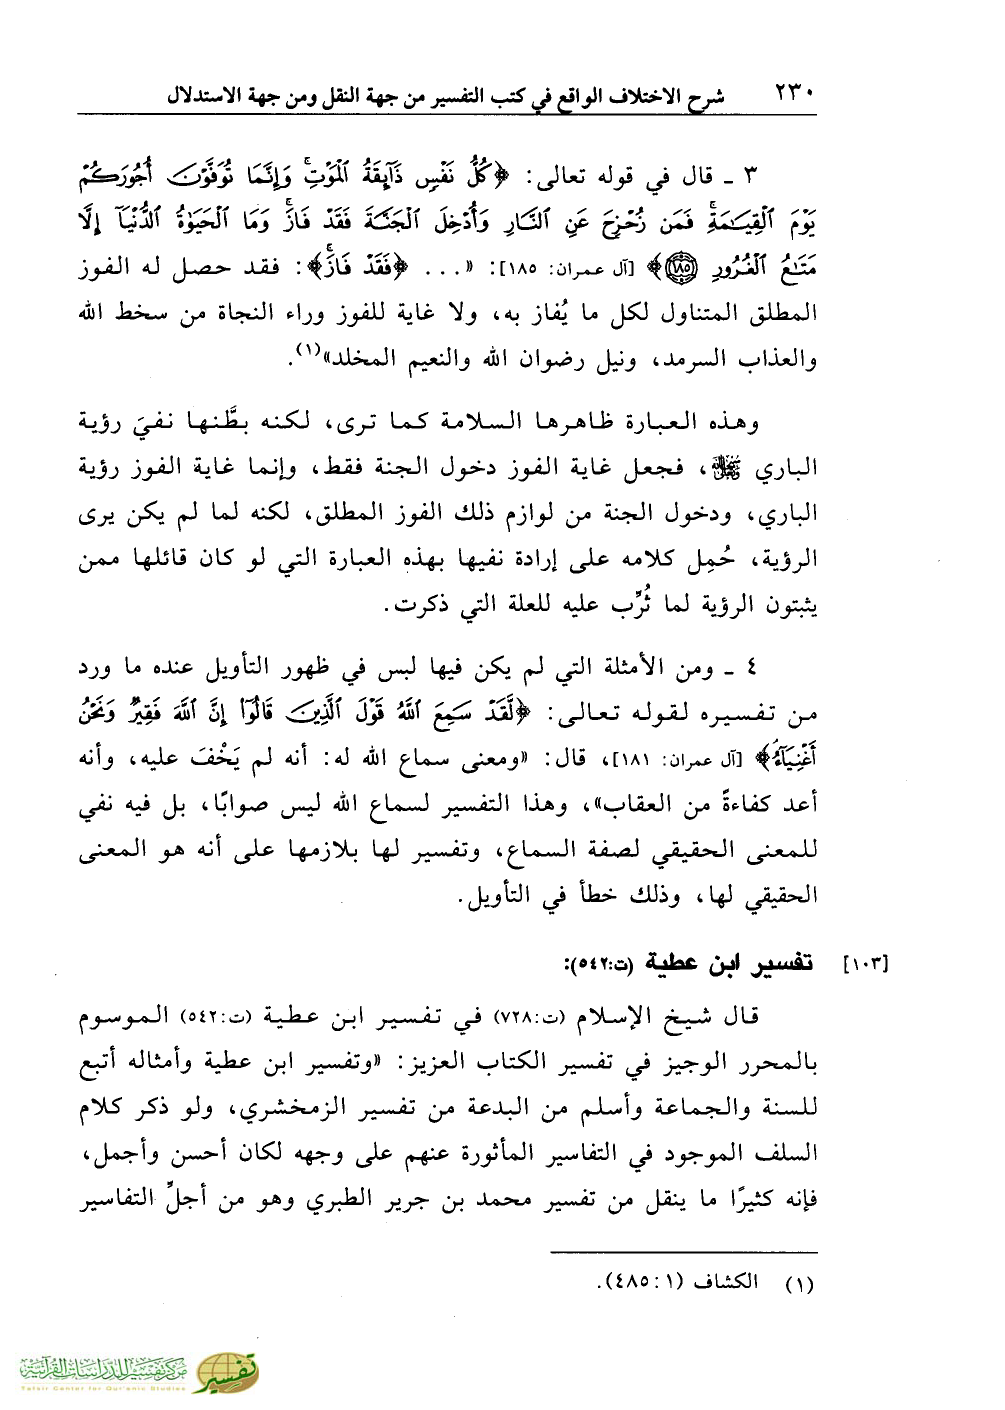 ٢٣٠ شرح الاختلاف الواقع في كتب التفسير من جهة النقل ومن جهة الاستدلال
٣ ـ قال في قوله تعالى: ﴿كُلُّ نَفْسٍ ذَآئِقَةُ ٱلْمَوْتِۗ وَإِنَّمَا تُوَفَّوْنَ أُجُورَكُمْ
يَوْمَ ٱلْقِيَـٰمَةِۖ فَمَن زُحْزِحَ عَنِ ٱلنَّارِ وَأُدْخِلَ ٱلْجَنَّةَ فَقَدْ فَازَۗ وَمَا ٱلْحَيَوٰةُ ٱلدُّنْيَآ إِلَّا
مَتَـٰعُ ٱلْغُرُورِ ﴿١٨٥﴾﴾ [آل عمران: ١٨٥]: «... ﴿فَقَدْ فَازَۗ﴾: فقد حصل له الفوز
المطلق المتناول لكل ما يُفاز به، ولا غاية للفوز وراء النجاة من سخط الله
والعذاب السرمد، ونيل رضوان الله والنعيم المخلد»(١).
وهذه العبارة ظاهرها السلامة كما ترى، لكنه بطَّنها نفيَ رؤية
الباري ﷻ، فجعل غاية الفوز دخول الجنة فقط، وإنما غاية الفوز رؤية
الباري، ودخول الجنة من لوازم ذلك الفوز المطلق، لكنه لما لم يكن يرى
الرؤية، حُمِل كلامه على إرادة نفيها بهذه العبارة التي لو كان قائلها ممن
يثبتون الرؤية لما ثُرِّب عليه للعلة التي ذكرت.
٤ ـ ومن الأمثلة التي لم يكن فيها لبس في ظهور التأويل عنده ما ورد
من تفسيره لقوله تعالى: ﴿لَّقَدْ سَمِعَ ٱللَّهُ قَوْلَ ٱلَّذِينَ قَالُوٓا۟ إِنَّ ٱللَّهَ فَقِيرٌ وَنَحْنُ
أَغْنِيَآءُۘ﴾ [آل عمران: ١٨١]، قال: «ومعنى سماع الله له: أنه لم يَخْفَ عليه، وأنه
أعد كفاءةً من العقاب»، وهذا التفسير لسماع الله ليس صوابًا، بل فيه نفي
للمعنى الحقيقي لصفة السماع، وتفسير لها بلازمها على أنه هو المعنى
الحقيقي لها، وذلك خطأ في التأويل.
[١٠٣] تفسير ابن عطية (ت:٥٤٢):
قال شيخ الإسلام (ت:٧٢٨) في تفسير ابن عطية (ت:٥٤٢) الموسوم
بالمحرر الوجيز في تفسير الكتاب العزيز: «وتفسير ابن عطية وأمثاله أتبع
للسنة والجماعة وأسلم من البدعة من تفسير الزمخشري، ولو ذكر كلام
السلف الموجود في التفاسير المأثورة عنهم على وجهه لكان أحسن وأجمل،
فإنه كثيرًا ما ينقل من تفسير محمد بن جرير الطبري وهو من أجلِّ التفاسير
(١) الكشاف (١: ٤٨٥).
مركز تفسير للدراسات القرآنية
Tafsir Center for Qur'anic Studies
تفسير